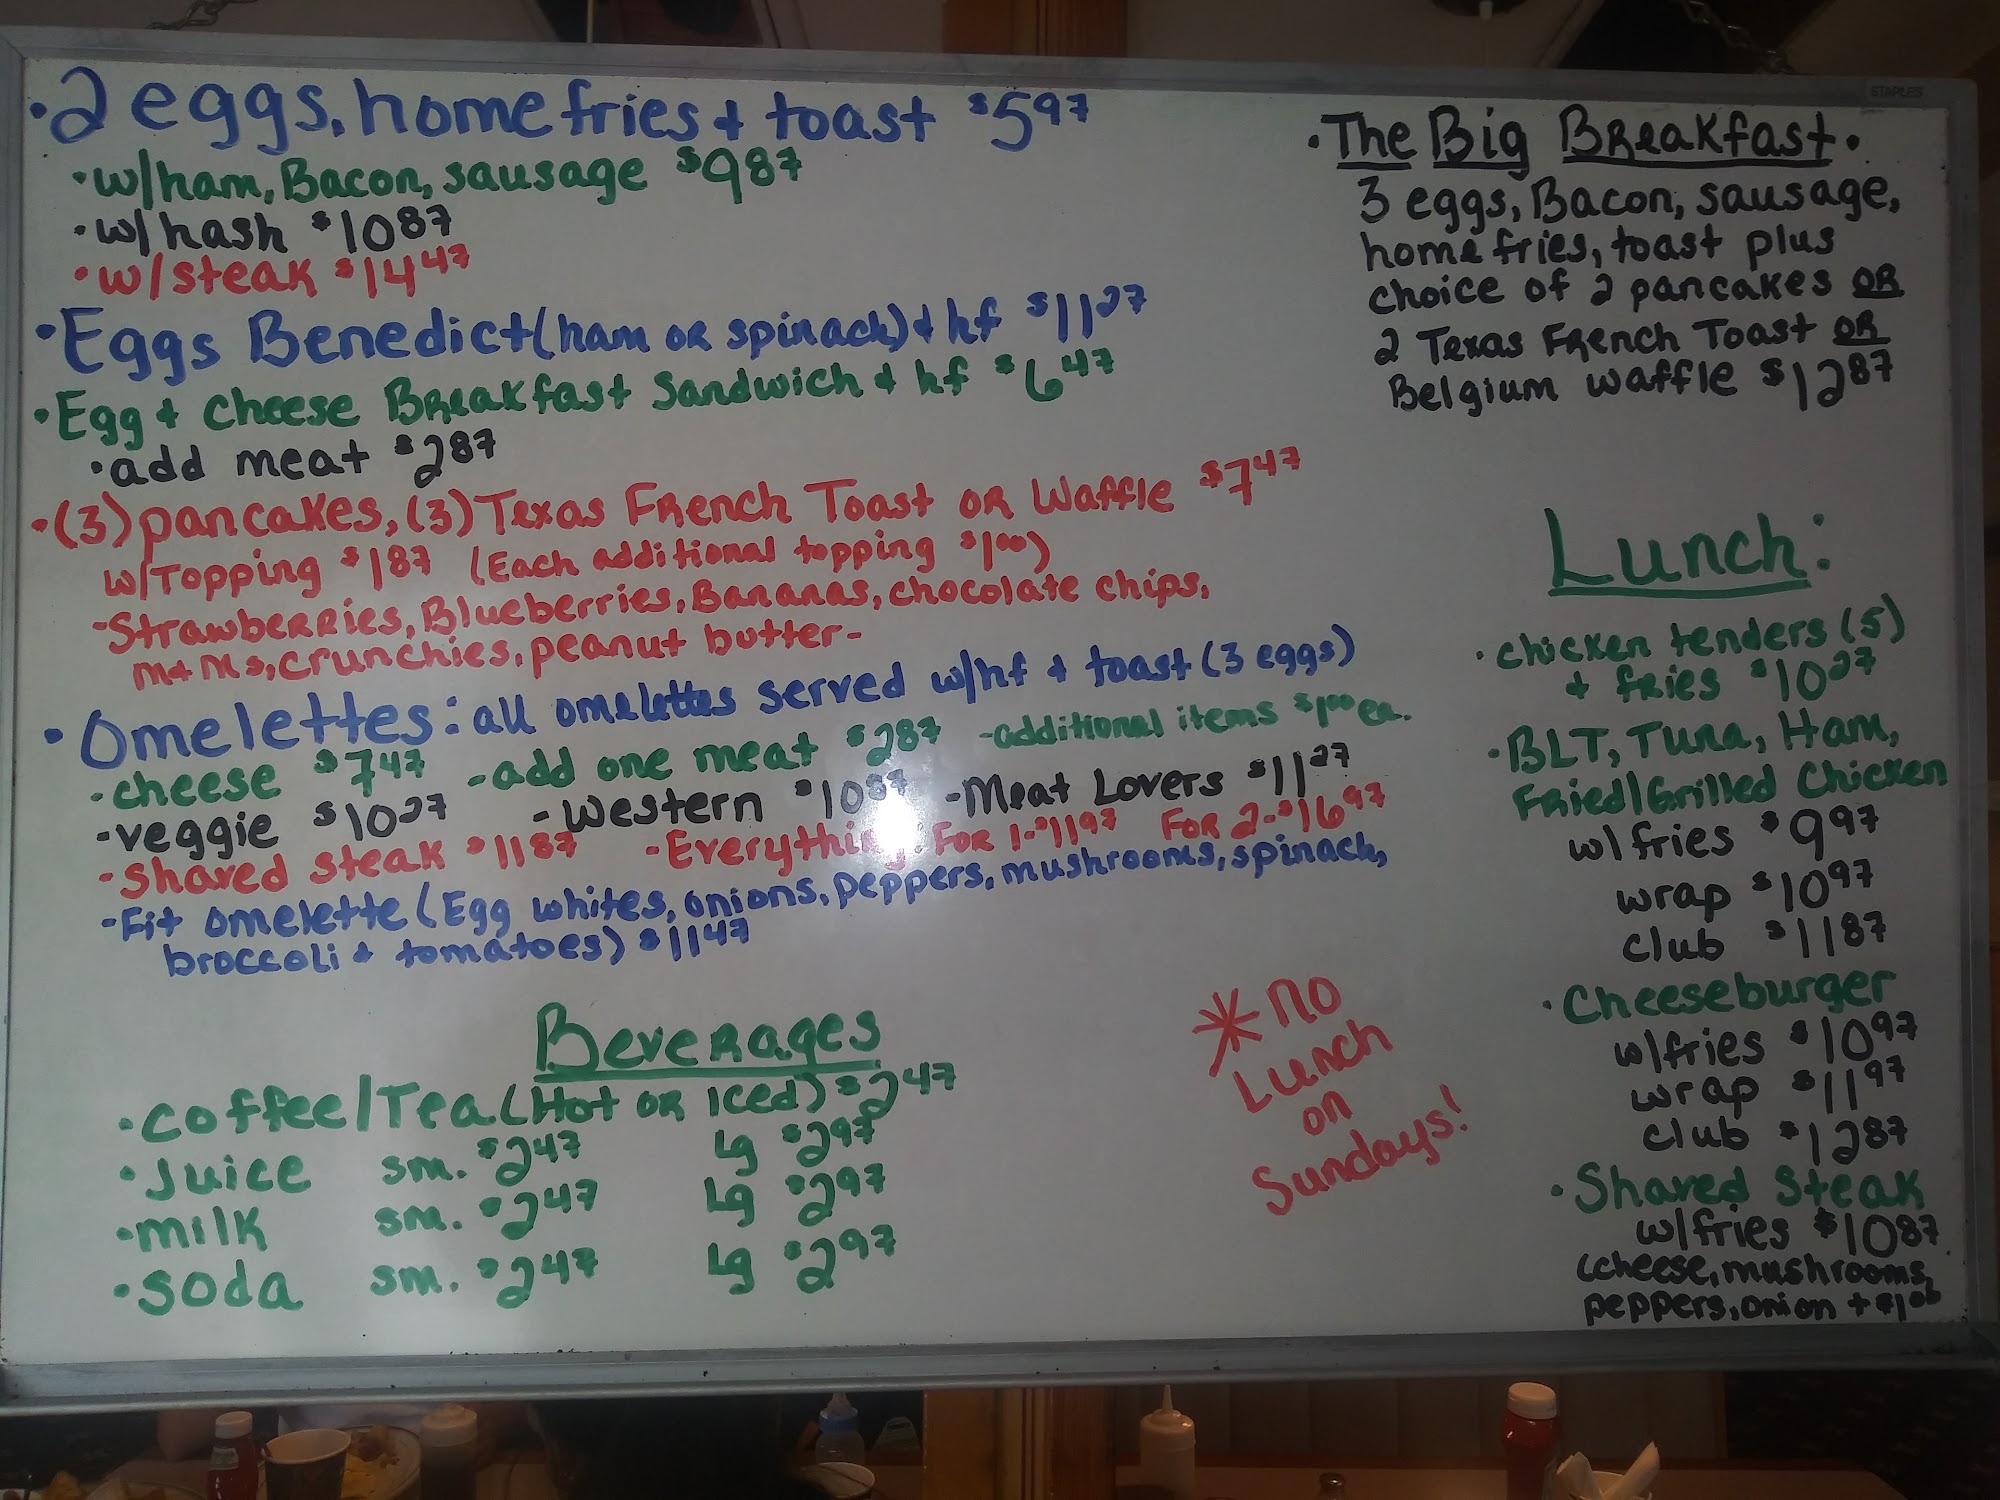 • 2 eggs, home fries + toast $5 97
• w/ham, Bacon, sausage $9 87
• w/hash $10 87
• w/steak $14 47
• Eggs Benedict (ham or spinach) + hf $11 27
• Egg + Cheese Breakfast Sandwich + hf $6 47
• add meat $2 87
• (3) pancakes, (3) Texas French Toast or Waffle $7 47
w/Topping $1 87 (Each additional topping $1 00)
-Strawberries, Blueberries, Bananas, chocolate chips,
m+ms, crunchies, peanut butter-
• Omelettes: all omelettes served w/hf + toast (3 eggs)
-cheese $7 47 -add one meat $2 87 -additional items $1 00 ea.
-veggie $10 27 -Western $10 87 -Meat Lovers $11 27
-Shaved steak $11 87 -Everything: For 1-$11 97 For 2-$16 97
-Fit omelette (Egg whites, onions, peppers, mushrooms, spinach,
broccoli + tomatoes) $11 47
Beverages
• Coffee/Tea (Hot or Iced) $2 47
• Juice sm. $2 47 Lg $2 97
• milk sm. $2 47 Lg $2 97
• soda sm. $2 47 Lg $2 97
* no
Lunch
on
Sundays!
STAPLES
• The Big Breakfast •
3 eggs, Bacon, sausage,
home fries, toast plus
choice of 2 pancakes or
2 Texas French Toast or
Belgium waffle $12 87
Lunch:
• chicken tenders (5)
+ fries $10 27
• BLT, Tuna, Ham,
Fried/Grilled Chicken
w/fries $9 97
wrap $10 97
club $11 87
• Cheeseburger
w/fries $10 97
wrap $11 97
club $12 87
• Shaved Steak
w/fries $10 87
(cheese, mushrooms,
peppers, onion + $1 00